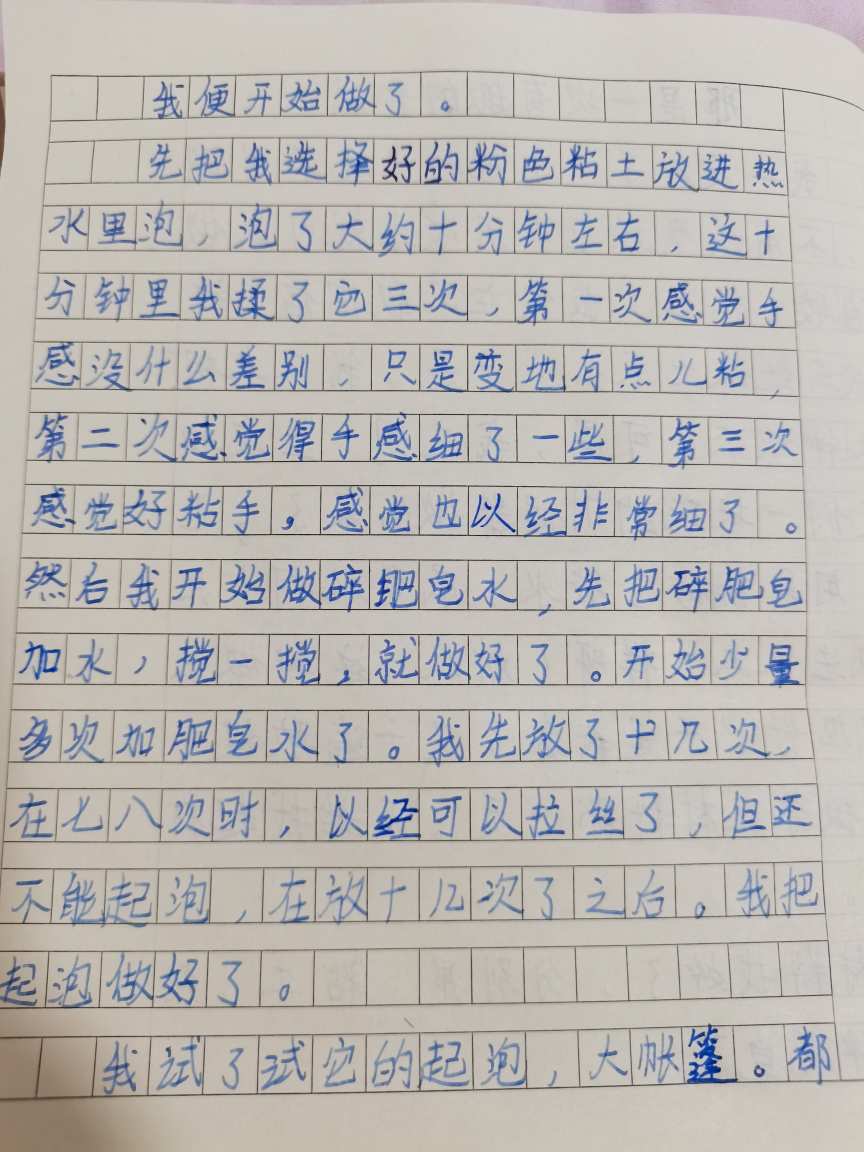 我便开始做了。
先把我选择好的粉色粘土放进热
水里泡，泡了大约十分钟左右，这十
分钟里我揉了它三次，第一次感觉手
感没什么差别，只是变地有点儿粘，
第二次感觉得手感细了一些，第三次
感觉好粘手，感觉也以经非常细了。
然后我开始做碎肥皂水，先把碎肥皂
加水，搅一搅，就做好了。开始少量
多次加肥皂水了。我先放了十几次，
在七八次时，以经可以拉丝了，但还
不能起泡，在放十几次了之后。我把
起泡做好了。
我试了试它的起泡，大帐篷。都